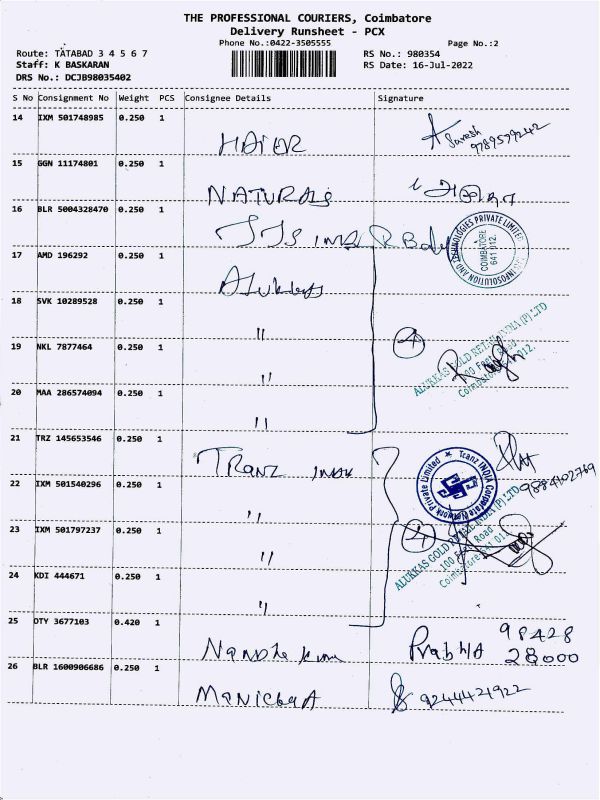 THE PROFESSIONAL COURIERS, Coimbatore
Delivery Runsheet - PCX
Phone No.:0422-3505555
Page No.:2
Route: TATABAD 3 4 5 6 7
RS No.: 980354
Staff: K BASKARAN
RS Date: 16-Jul-2022
DRS No.: DCJB98035402
S No Consignment No Weight PCS Consignee Details Signature
14 IXM 501748985 0.250 1
HAIER
Suresh
9789599242
15 GGN 11174801 0.250 1
NATURALS
16 BLR 5004328470 0.250 1
INFOSOLUTION AND TECHNOLOGIES PRIVATE LIMITED
COIMBATORE
641 012.
17 AMD 196292 0.250 1
Alukkas
18 SVK 10289528 0.250 1
"
4
ALUKKAS GOLD RETAIL INDIA (P) LTD
100 Feet Road
Coimbatore 641 012.
19 NKL 7877464 0.250 1
"
20 MAA 286574094 0.250 1
"
21 TRZ 145653546 0.250 1
TRANZ INDIA
Tranz INDIA Corporate Network Private Limited
9884102769
22 IXM 501540296 0.250 1
"
23 IXM 501797237 0.250 1
"
4
ALUKKAS GOLD RETAIL INDIA (P) LTD
100 Feet Road
Coimbatore 641 012
24 KDI 444671 0.250 1
"
25 OTY 3677103 0.420 1
Prabha 98428
28000
26 BLR 1600906686 0.250 1
9244421922